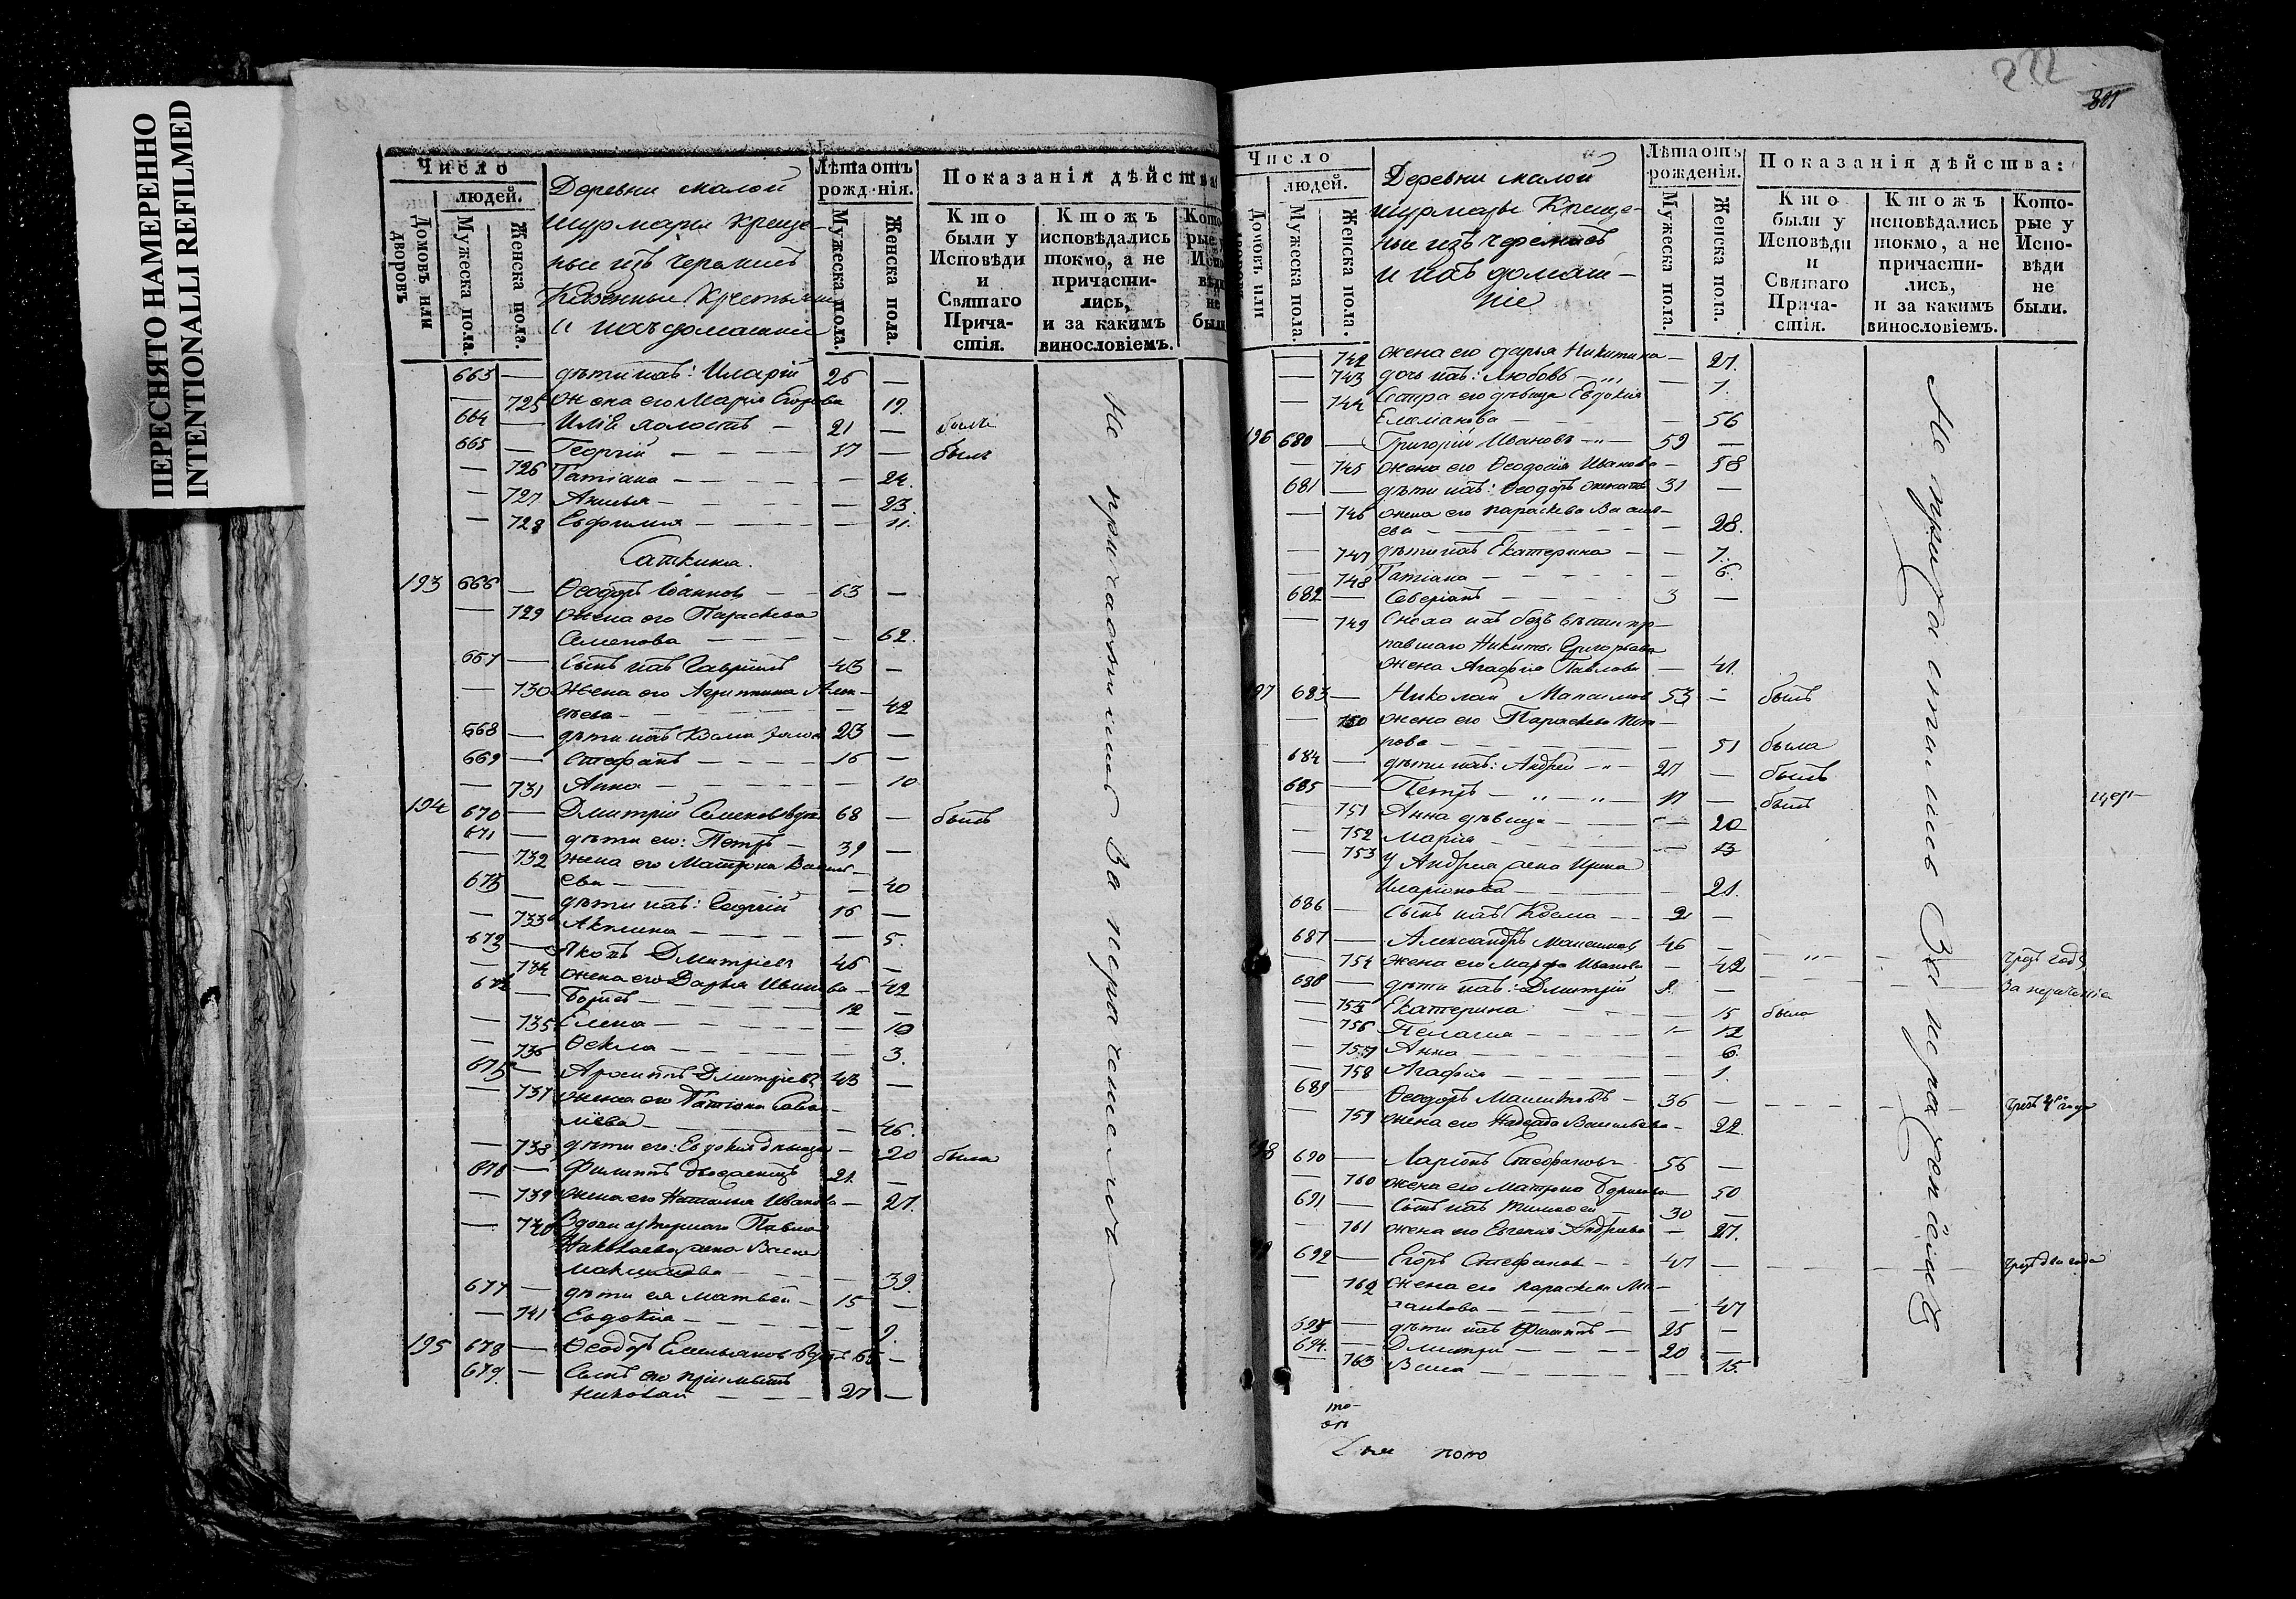 ПЕРЕСНЯТО НАМЕРЕННО
INTENTIONALLI REFILMED
Число
людей.
Домовъ или дворовъ
Мужеска пола.
Женска пола.
Деревни малой
Шурмари Креще-
ные изъ Черемисъ
Казенные Крестьяни
и ихъ домашніи
Лѣта отъ рожденія.
Мужеска пола.
Женска пола.
Показанія дѣйства:
Кто были у Исповѣди и Святаго Прича-стія.
Ктожъ исповѣдались токмо, а не причасти-лись, и за какимъ винословіемъ.
663 — дѣти ихъ: Иларій 26 —
— 725 Жена его Марія Егорова 19.
664 — Илія холостъ — 21 — былъ
665 — Георгій — 17 — былъ
— 726 Татіана — — 24.
— 727 — 23.
— 728 Евфимія — — 11.
Саткина.
193 666 — Ѳеодоръ Іоанновъ — 63 —
— 729 Жена его Параскева
Семенова — — 62.
667 — Сынъ ихъ Гавріилъ 43 —
— 730 Жена его Агриппина Алек-
сѣева — — 42
668 — дѣти ихъ Козма 23 —
669 — Стефанъ — 16 —
— 731 Анна — — 10
194 670 — Дмитрій Семеновъ 68 — былъ
671 — дѣти его: Петръ — 39 —
— 732 Жена его Матрона Василь-
ева — — 40
673 — дѣти ихъ: Георгій 16 —
— 733 Акилина — — 5.
672 — Яковъ Дмитріевъ 46 —
— 734 Жена его Дарья Иванова — 42
674 — Борисъ — 12 —
— 735 Елена — — 10
— 736 Ѳекла — — 3.
675 — Дмитріевъ 43 —
— 737 Жена его Татіана Саве-
ліева — — 46.
— 738 дѣти его: Евдокія дѣвица — 20 была
676 — Филиппъ 21. —
— 739 Жена его Наталья Иванова — 21.
— 740 Вдова умершаго Павла
Николаева жена Васса
Максимова — — 39.
677 — дѣти ея Матвей — 15 —
— 741 Евдокія — — 9.
195 678 — Ѳеодоръ Емельяновъ 66 —
679. — Сынъ его пріимышъ
Николай — — 27 —
Не причастились За нерачениемъ
272
801
Число
людей.
Домовъ или
Мужеска пола
Женска пола.
Деревни малой
Шурмары Креще-
ные изъ черемисъ
и ихъ домаш-
ніе
Лѣта отъ рожденія.
Мужеска пола.
Женска пола.
Показанія дѣйства:
Кто были у Исповѣди и Святаго Прича-стія.
Ктожъ исповѣдались токмо, а не причасти-лись, и за какимъ винословіемъ.
Кото-рые у Испо-вѣди не были.
— 742 жена его Дарья Никитина — 21.
— 743 дочь ихъ: Любовь — — 1.
— 744 Сестра его дѣвица Евдокія
— — 56
196 680 — Григорій Ивановъ — 59 —
— 745 жена его Ѳеодосія Иванова — 58
681 — дѣти ихъ: Ѳеодоръ женатъ 31 —
— 746 жена его Параскева Василь-
ева — — 28.
— 747 дѣти ихъ Екатерина — — 7.
— 748 Татіана — — 6.
682 — Северіанъ — 3 —
— 749 Сноха ихъ безъ вѣсти пр-
павшаго Никиты Григорьева
жена Агафія Павлова — 41.
197 683 — Николай Максимовъ 53 — былъ
— 750 жена его Параскева Пет-
рова — — 51 была
684 — дѣти ихъ: Андрей — 27 — былъ
685 — Петръ — 17 — былъ
— 751 Анна дѣвица — — 20
— 752 Марія — — 13
— 753 У Андрея жена Ирина
Иларіонова — — 21.
686 — Сынъ ихъ Козма — 2 —
687 — Александръ Максимовъ 46 — чрезъ годъ
— 754 жена его Марфа Иванова — 42
688 — дѣти ихъ: Дмитрій 8. — За нераченіе
— 755 Екатерина — 15 была
— 756 Пелагія — 12
— 757 Анна — — 6.
— 758 Агафія — — 1.
689 — Ѳеодоръ Максимовъ — 36 —
— 759 жена его Надежда Васильева — 22.
198 690 — Ларіонъ Стефановъ 56 —
— 760 жена его Матрона Борисова — 50
691 — Сынъ ихъ Тимофей — 30 —
— 761 жена его Евгенія Андреева — 27.
692 — Егоръ Стефановъ — 47 — чрезъ два года
— 762 жена его Параскева
— — 47
693 — дѣти ихъ Филиппъ — 25 —
694. — Дмитрій — 20 —
— 763 Васса — — 15.
Не причастились За нераченіемъ